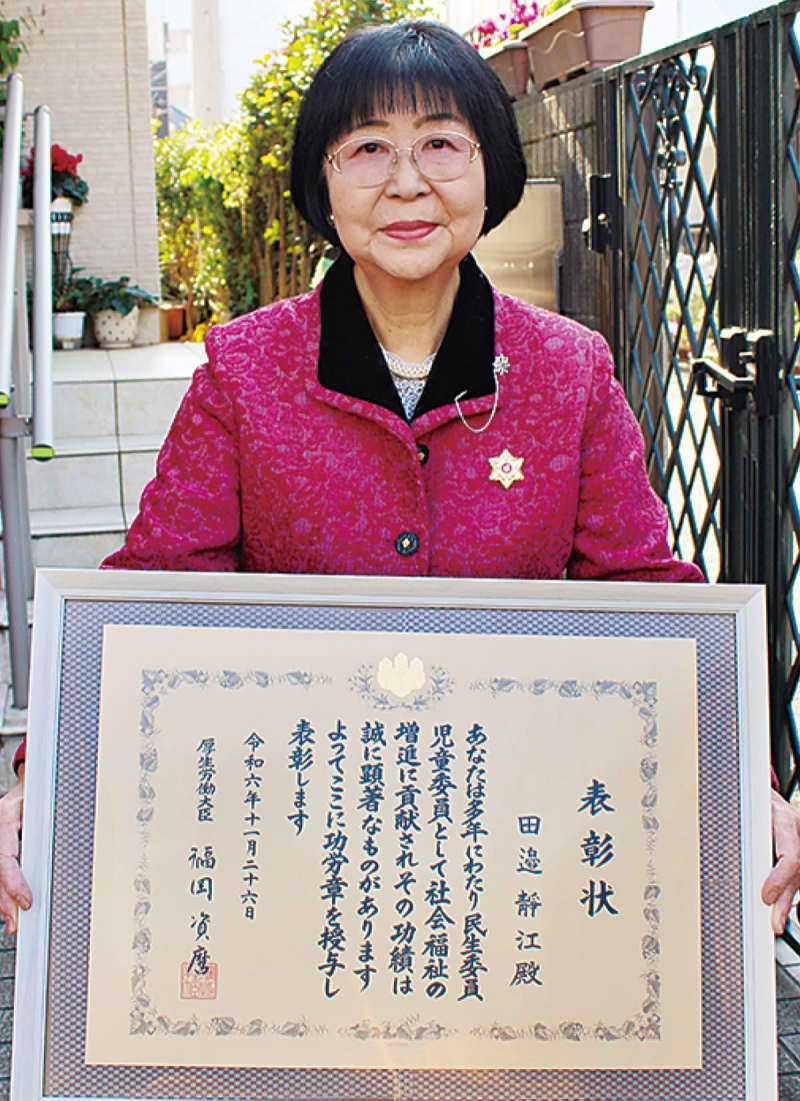 表彰状
田邉靜江殿
あなたは多年にわたり民生委員
児童委員として社会福祉の
増進に貢献されその功績は
誠に顕著なものがあります
よってここに功労章を授与し
表彰します
令和六年十一月二十六日
厚生労働大臣
福岡資麿